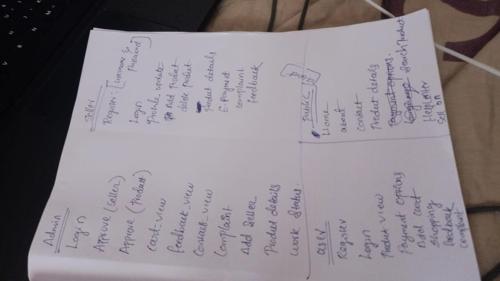 Admin
Login
Approve (Seller)
Approve (Product)
cart-view
feedback view
contact-view
Complaint
Add Seller
Product details
work status
user
Register
Login
Product view
Payment options
Add cart
shopping
feedback
complaint
Seller
Register [username & Password]
Login
profile update
Add Product
delete product
Product details
E-payment
complaint
feedback
Public
Home
about
contact
Product details
Payment options
Search product
Sell on